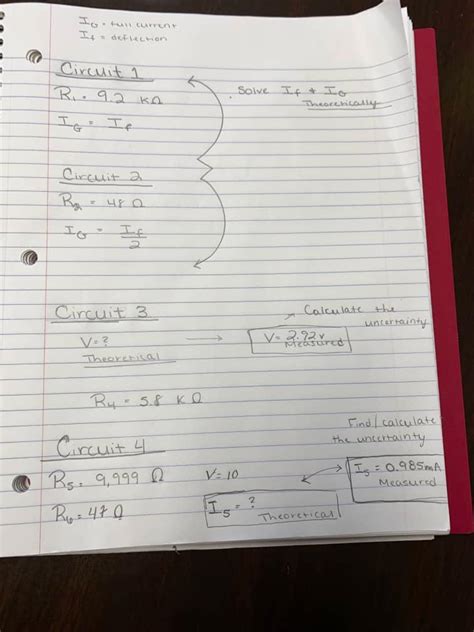 I_G = full current
I_f = deflection
Circuit 1
R₁ = 9.2 kΩ
I_G = I_f
. Solve I_f & I_G
Theoretically
Circuit 2
R₂ = 48 Ω
I_G = I_f/2
Circuit 3
Calculate the
uncertainty
V = ?
Theoretical
V = 2.92v
Measured
R₄ = 5.8 kΩ
Circuit 4
Find/calculate
the uncertainty
R₅ = 9,999 Ω
V = 10
I₅ = 0.985mA
Measured
R₆ = 47 Ω
I₅ = ?
Theoretical